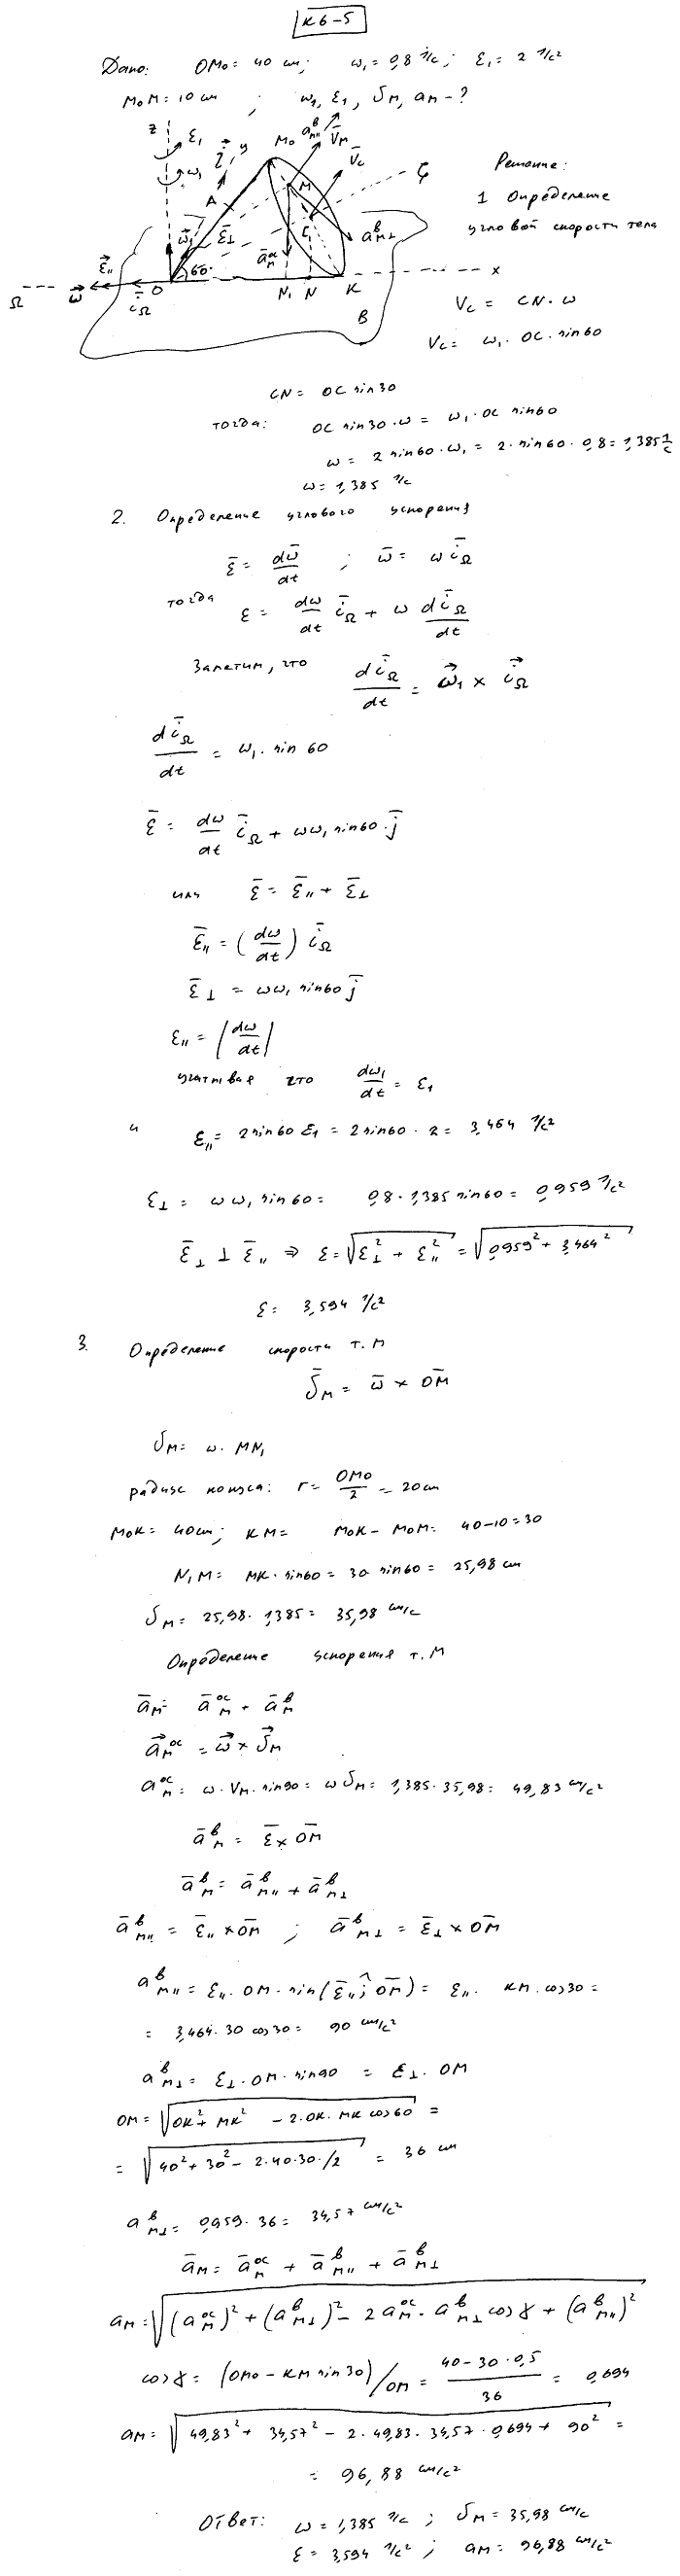 К6-5
Дано: OM₀ = 40 см; ω₁ = 0,8 1/с; ε₁ = 2 1/с²
M₀M = 10 см ; ω₁, ε₁, υм, aм - ?
z ε₁ y M₀ aᴮм∥ V̄м
ω₁ V̄c ζ
A M
ω̄₁ ε̄⊥ C aᴮм⊥
ε̄∥ āᵒᶜм
Ω ω̄ īΩ O 60° N₁ N K x
B
Решение:
1 Определение
угловой скорости тела
Vc = CN · ω
Vc = ω₁ · OC · sin60
CN = OC sin30
тогда: OC sin30 · ω = ω₁ · OC sin60
ω = 2 sin60 · ω₁ = 2 · sin60 · 0,8 = 1,385 1/с
ω = 1,385 1/с
2. Определение углового ускорения
ε̄ = dω̄/dt ; ω̄ = ω īΩ
тогда ε = dω/dt īΩ + ω dīΩ/dt
Заметим, что dīΩ/dt = ω⃗₁ × i⃗Ω
dīΩ/dt = ω₁ · sin 60
ε̄ = dω/dt īΩ + ωω₁ sin60 · j̄
или ε̄ = ε̄∥ + ε̄⊥
ε̄∥ = (dω/dt) īΩ
ε̄⊥ = ωω₁ sin60 j̄
ε∥ = |dω/dt|
учитывая что dω₁/dt = ε₁
и ε∥ = 2 sin60 ε₁ = 2 sin60 · 2 = 3,464 1/с²
ε⊥ = ωω₁ sin60 = 0,8 · 1,385 sin60 = 0,959 1/с²
ε̄⊥ ⊥ ε̄∥ ⇒ ε = √(ε⊥² + ε∥²) = √(0,959² + 3,464²)
ε = 3,594 1/с²
3. Определение скорости т. М
ῡм = ω̄ × OM̄
υм = ω · MN₁
радиус конуса: r = OM₀/2 = 20 см
M₀K = 40 см; KM = M₀K - M₀M = 40-10 = 30
N₁M = MK · sin60 = 30 sin60 = 25,98 см
υм = 25,98 · 1,385 = 35,98 см/с
Определение ускорения т. М
āм = āᵒᶜм + āᴮм
a⃗мᵒᶜ = ω⃗ × υ⃗м
aᵒᶜм = ω · Vм · sin90 = ω υм = 1,385 · 35,98 = 49,83 см/с²
āᴮм = ε̄ × OM̄
āᴮм = āᴮм∥ + āᴮм⊥
āᴮм∥ = ε̄∥ × OM̄ ; āᴮм⊥ = ε̄⊥ × OM̄
aᴮм∥ = ε∥ · OM · sin(ε̄∥ ^; OM̄) = ε∥ · KM · cos30 =
= 3,464 · 30 cos30 = 90 см/с²
aᴮм⊥ = ε⊥ · OM · sin90 = ε⊥ · OM
OM = √(OK² + MK² - 2 · OK · MK cos60) =
= √(40² + 30² - 2·40·30·/2) = 36 см
aᴮм⊥ = 0,959 · 36 = 34,57 см/с²
āм = āᵒᶜм + āᴮм∥ + āᴮм⊥
aм = √((aᵒᶜм)² + (aᴮм⊥)² - 2aᵒᶜм · aᴮм⊥ cosγ + (aᴮм∥)²)
cosγ = (OM₀ - KM sin30)/OM = (40 - 30 · 0,5)/36 = 0,694
aм = √(49,83² + 34,57² - 2 · 49,83 · 34,57 · 0,694 + 90²) =
= 96,88 см/с²
Ответ: ω = 1,385 1/с ; υм = 35,98 см/с
ε = 3,594 1/с² ; aм = 96,88 см/с²